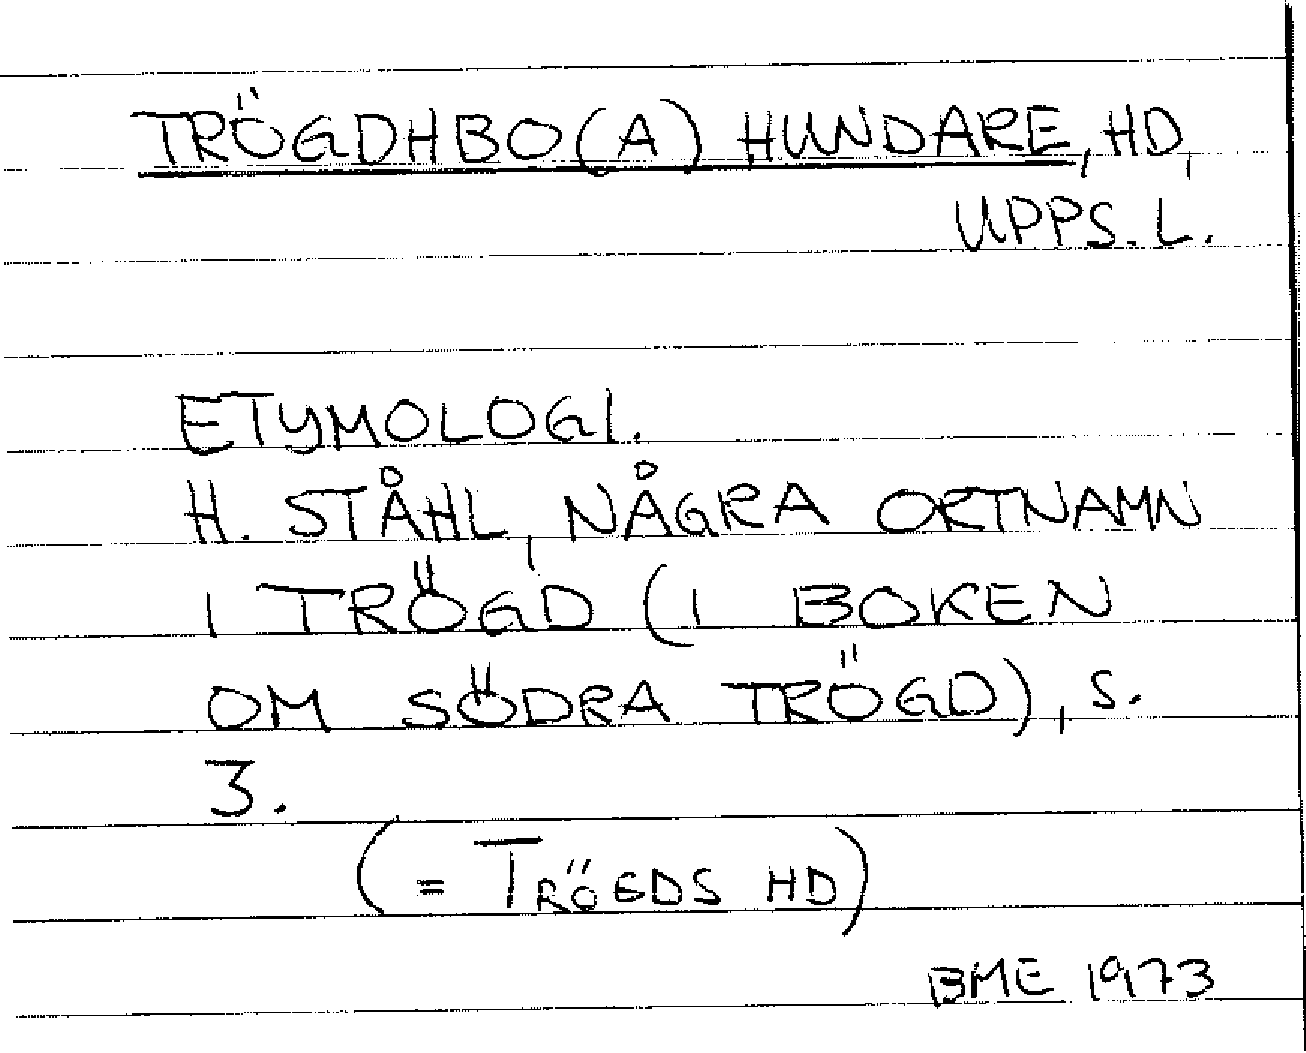 TRÖGDHBO(A) HUNDARE, HD,
UPPS. L.
ETYMOLOGI.
H. STÅHL, NÅGRA ORTNAMN
I TRÖGD (I BOKEN
OM SÖDRA TRÖGD), S.
3.
(= TRÖGDS HD)
BME 1973